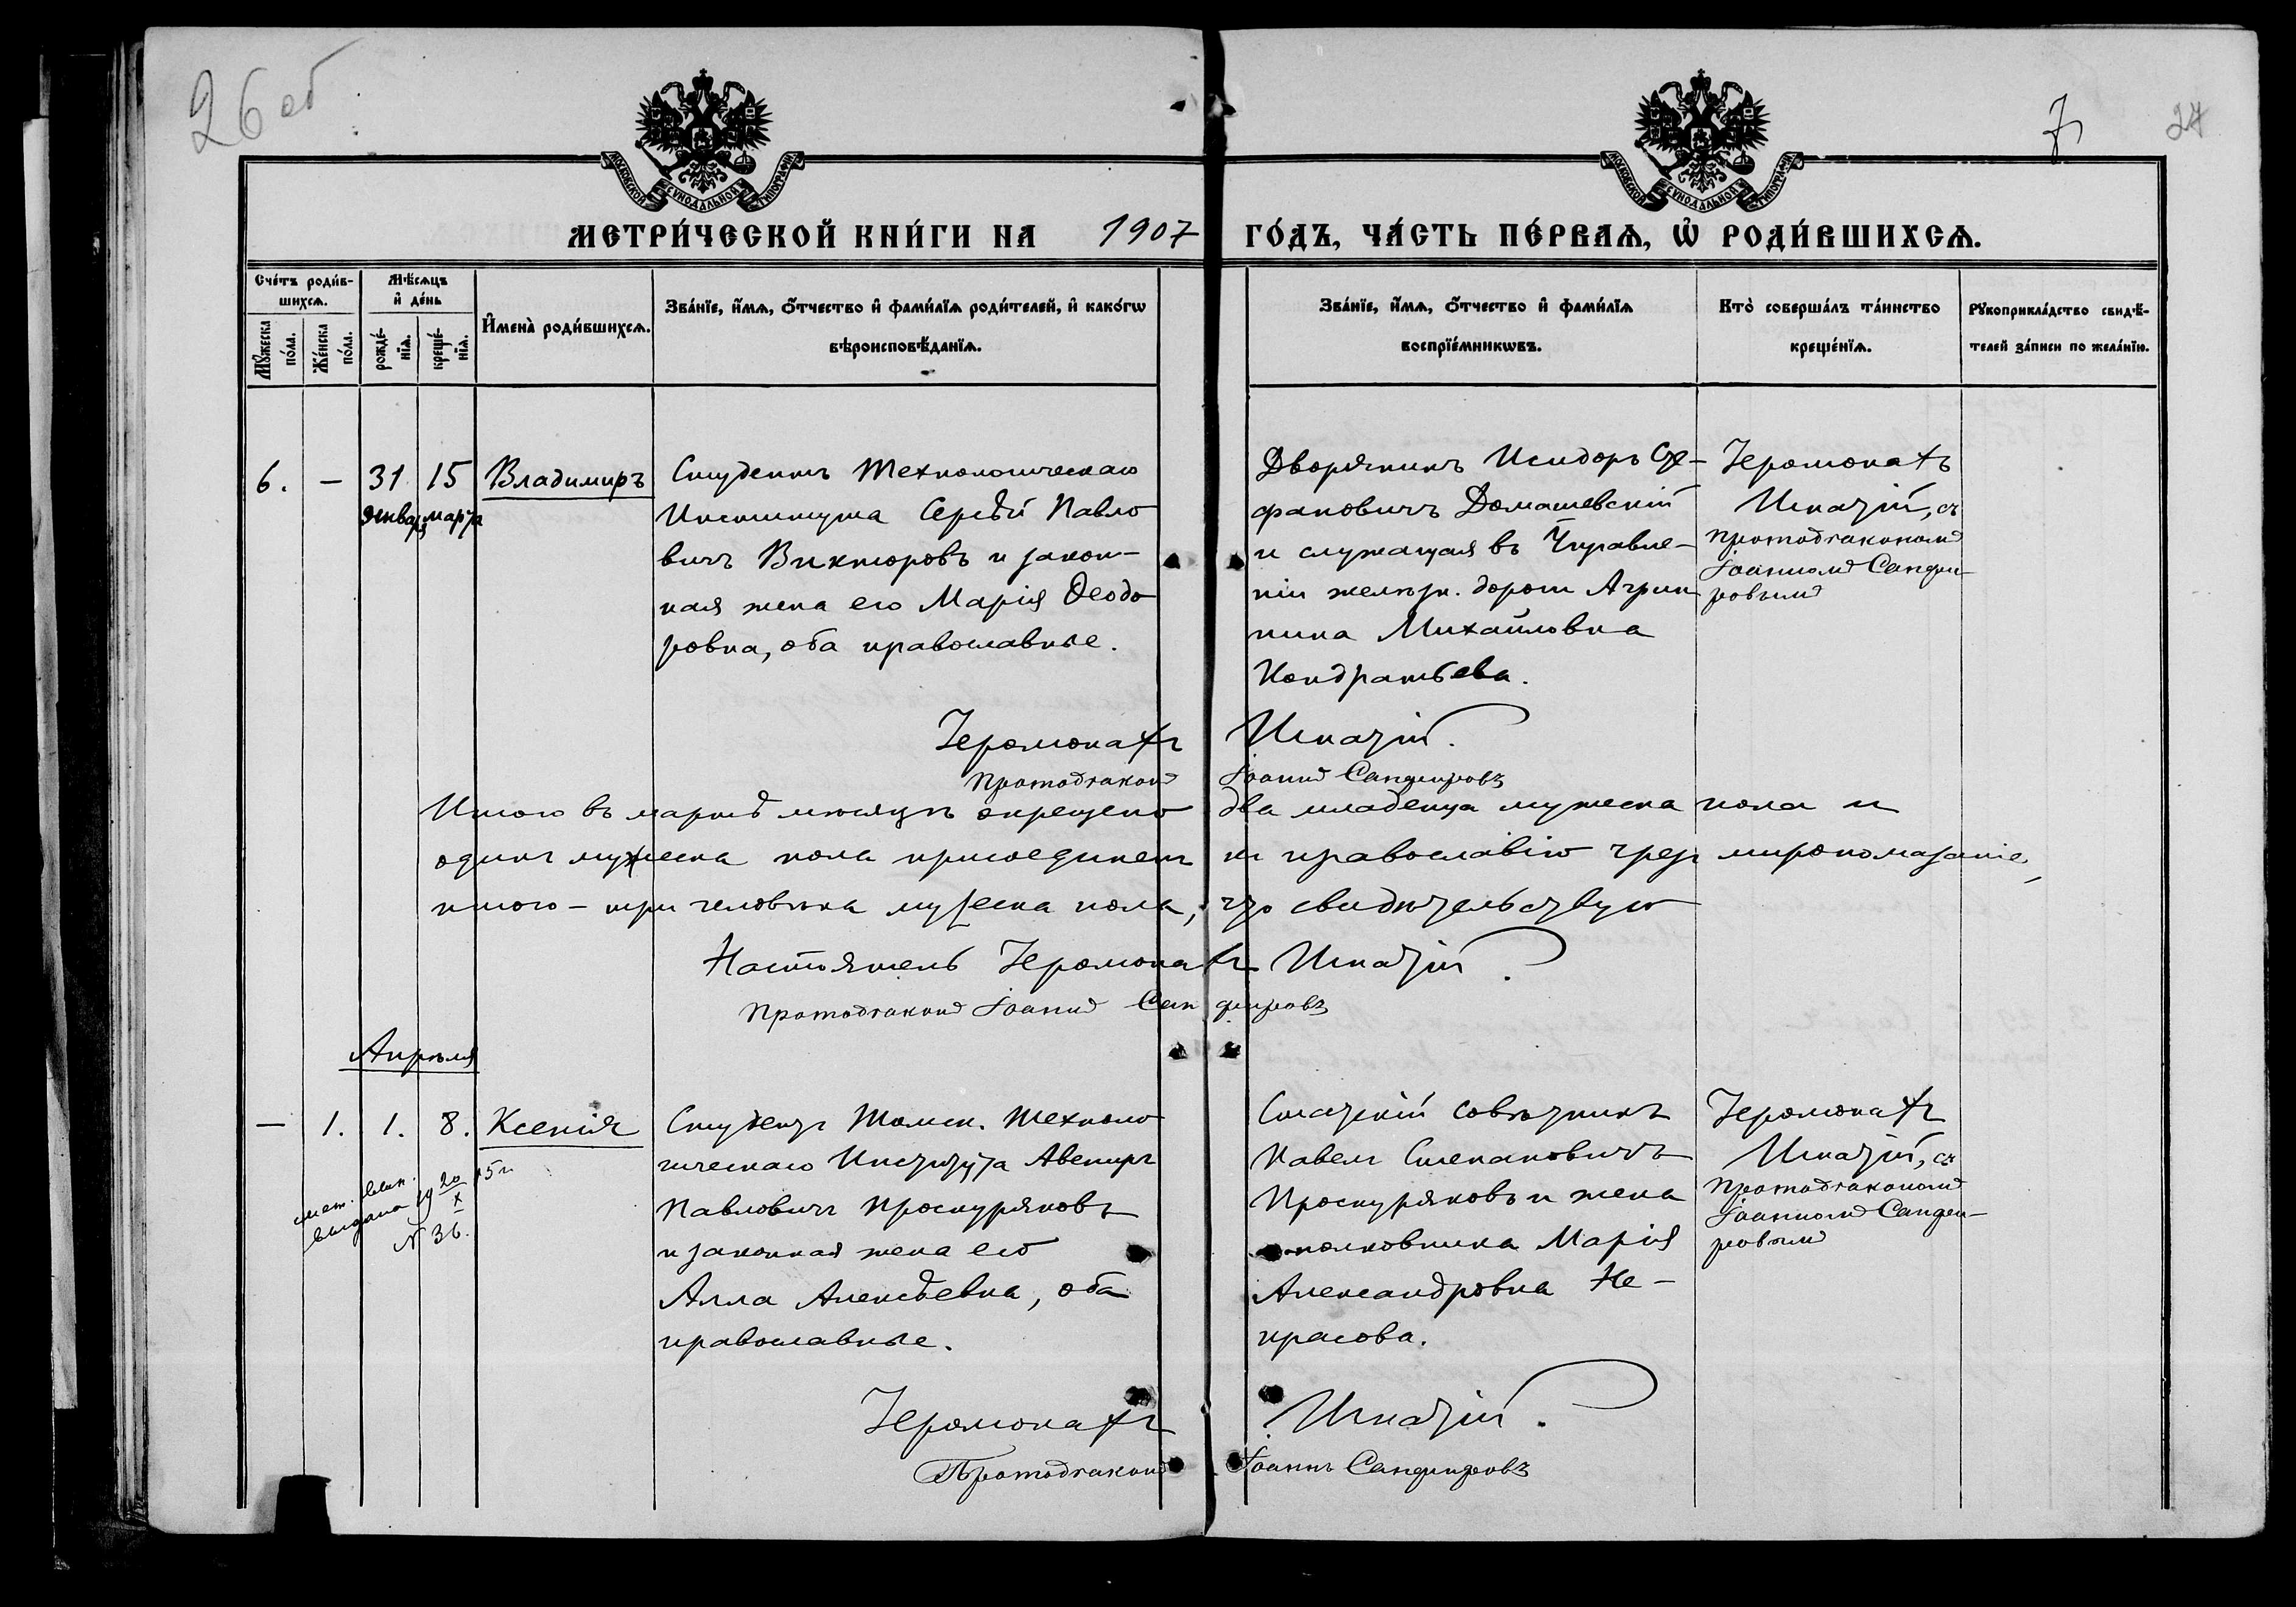 26 об
7
27
МОСКОВСКОЙ СѴНОДАЛЬНОЙ ТИПОГРАФІИ
МОСКОВСКОЙ СѴНОДАЛЬНОЙ ТИПОГРАФІИ
МЕТРИ́ЧЕСКОЙ КНИ́ГИ НА 1907 ГО́ДЪ, ЧА́СТЬ ПЕ́РВАѦ, Ѡ҆ РОДИ́ВШИХСѦ.
Сче́тъ роди́в-
шихсѧ.
Мꙋ́жеска
по́ла.
Же́нска
по́ла.
Мѣ́сѧцъ
и҆ де́нь
рожде́-
нїѧ.
креще́-
нїѧ.
И҆мена̀ роди́вшихсѧ.
Зва́нїе, и҆́мѧ, ѻ҆́тчество и҆ фами́лїѧ роди́телей, и҆ како́гѡ
вѣроисповѣ́данїѧ.
Зва́нїе, и҆́мѧ, ѻ҆́тчество и҆ фами́лїѧ
воспрїе́мникѡвъ.
Кто̀ соверша́лъ та́инство
креще́нїѧ.
Рꙋкоприкла́дство свидѣ́-
телей за́писи по жела́нїю.
6. — 31 января 15 марта Владимиръ
Студентъ Технологическаго
Института Сергѣй Павло
вичъ Викторовъ и закон-
ная жена его Марія Ѳеодо
ровна, оба православные.
Дворянинъ Исидоръ Сте-
фановичъ Домашевскій
и служащая въ Управле-
ніи желѣзн. дороги Агрип
пина Михайловна
Кондратьева.
Іеромонахъ
Игнатій, съ
протодіакономъ
Іоанномъ Санфи-
ровымъ
Іеромонахъ Игнатій.
Протодіаконъ Іоаннъ Санфировъ
Итого въ мартѣ мѣсяцѣ окрещено два младенца мужеска пола и
одинъ мужеска пола присоединенъ къ православію чрез миропомазаніе,
итого – три человѣка мужеска пола, что свидѣтельствую
Настоятель Іеромонахъ Игнатій.
Протодіаконъ Іоаннъ Санфировъ
Апрѣля
— 1. 1. 8. Ксенія
мет. выпи.
выдана 19 20/X 15 г.
№ 36.
Студентъ Томск. Техноло
гическаго Института Авениръ
Павловичъ Проскуряковъ
и законная жена его
Алла Алексѣевна, оба
православные.
Статскій совѣтникъ
Павелъ Степановичъ
Проскуряковъ и жена
полковника Марія
Александровна Не-
красова.
Іеромонахъ
Игнатій, съ
протодіакономъ
Іоанномъ Санфи-
ровымъ
Іеромонахъ Игнатій.
Протодіаконъ Іоаннъ Санфировъ